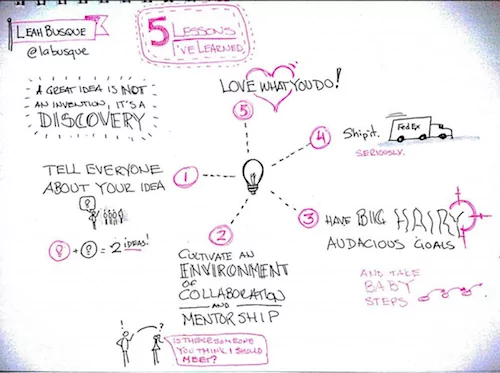 LEAH BUSQUE
@labusque
5 LESSONS
I'VE LEARNED
A GREAT IDEA IS NOT
AN INVENTION, IT'S A
DISCOVERY
LOVE WHAT YOU DO!
5
4
Ship it.
FedEx
SERIOUSLY.
TELL EVERYONE
ABOUT YOUR IDEA
1
+ = 2 IDEAS!
3
HAVE BIG HAIRY
AUDACIOUS GOALS
AND TAKE
BABY
STEPS
2
CULTIVATE AN
ENVIRONMENT
OF
COLLABORATION
AND
MENTORSHIP
! ?
IS THERE SOMEONE
YOU THINK I SHOULD
MEET?